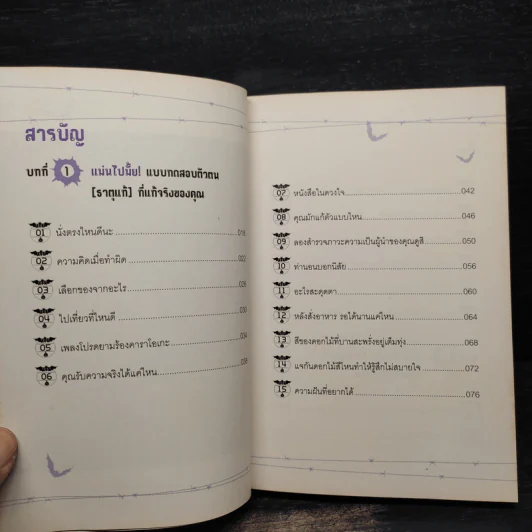 สารบัญ
บทที่ 1 แม่นไปมั้ย! แบบทดสอบตัวตน
[ธาตุแท้] ที่แท้จริงของคุณ
01 นั่งตรงไหนดีนะ
02 ความคิดเมื่อทำผิด
03 เลือกของจากอะไร
04 ไปเที่ยวที่ไหนดี
05 เพลงโปรดยามร้องคาราโอเกะ
06 คุณรับความจริงได้แค่ไหน
07 หนังสือในดวงใจ 042
08 คุณมักแก้ตัวแบบไหน 046
09 ลองสำรวจภาวะความเป็นผู้นำของคุณดูสิ 050
10 ท่านอนบอกนิสัย 056
11 อะไรสะดุดตา 060
12 หลังสั่งอาหาร รอได้นานแค่ไหน 064
13 สีของดอกไม้ที่บานสะพรั่งอยู่เต็มทุ่ง 068
14 แจกันดอกไม้สีไหนทำให้รู้สึกไม่สบายใจ 072
15 ความฝันที่อยากได้ 076